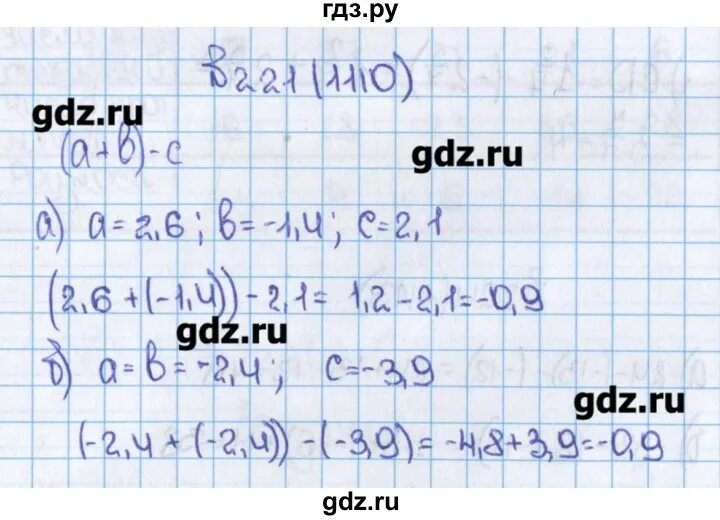 гдз.ру
В221(1110)
gdz.ru
(а+в)-с
gdz.ru
а) а=2,6; в=-1,4; с=2,1
(2,6+(-1,4))-2,1= 1,2-2,1=-0,9
gdz.ru
б) а=в=-2,4; с=-3,9
gdz.ru
(-2,4+(-2,4))-(-3,9)=-4,8+3,9=-0,9
gdz.ru